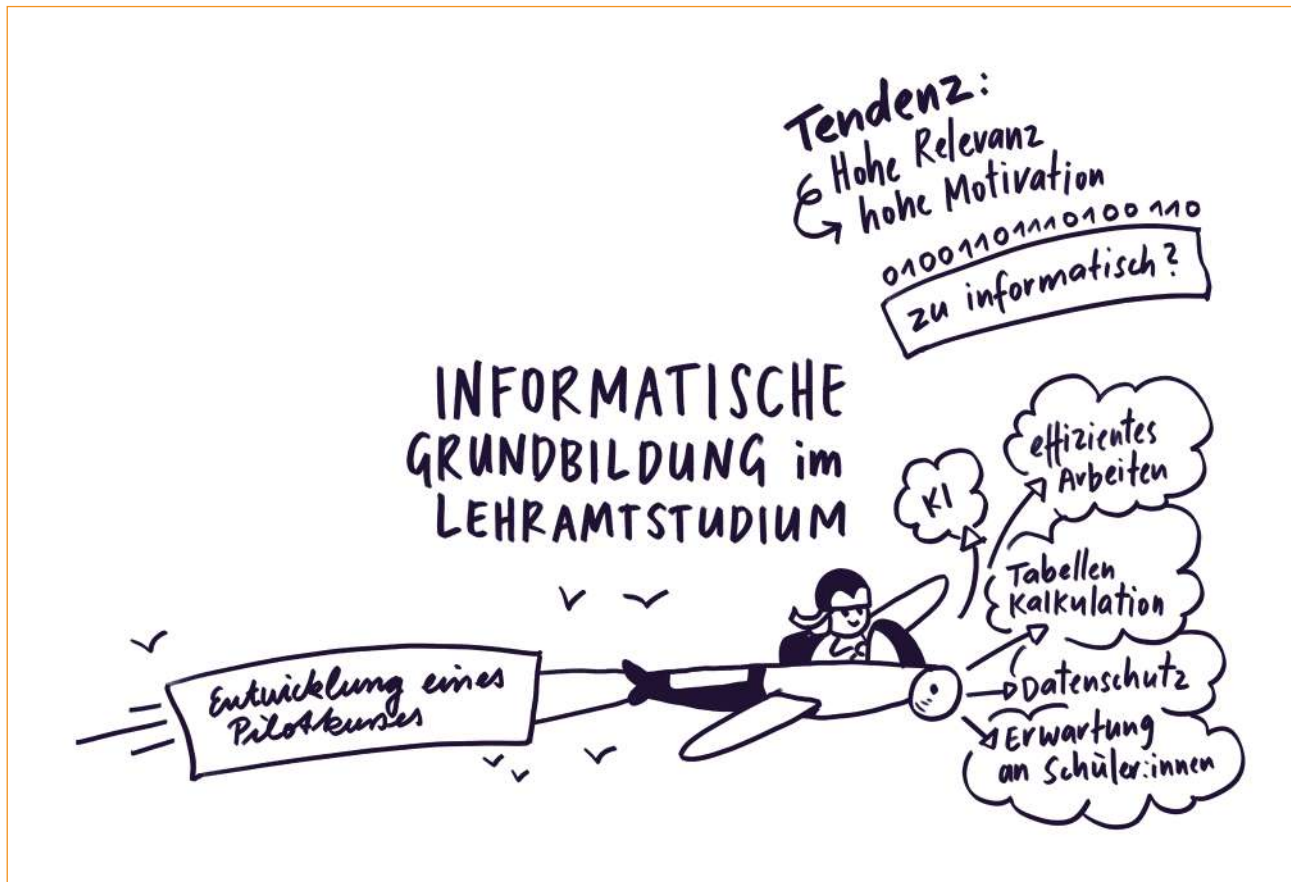 Tendenz:
Hohe Relevanz
hohe Motivation
01001101110100110
zu informatisch?
INFORMATISCHE
GRUNDBILDUNG im
LEHRAMTSTUDIUM
KI
effizientes
Arbeiten
Tabellen
Kalkulation
Datenschutz
Erwartung
an Schüler:innen
Entwicklung eines
Pilotkurses